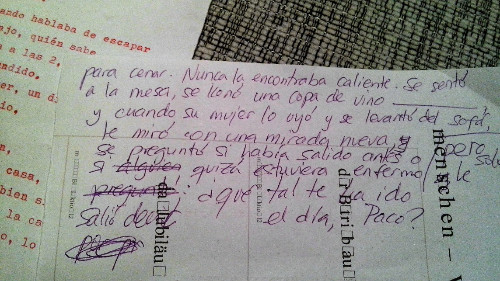 ando hablaba de escapar
ejo, quién sabe
a las 2,
ndido.
er, un di
io,
n,
casa,
bien s
la ca
o, lo
para cenar. Nunca la encontraba caliente. Se sentó
a la mesa, se llenó una copa de vino
y cuando su mujer lo oyó y se levantó del sofá,
le miró con una mirada nueva, y pero
se preguntó si había salido antes o solo
si alguien quizá estuviera enfermo, le
salió decir: ¿qué tal te ha ido
el día, Paco?
menschen –
Jubiläu